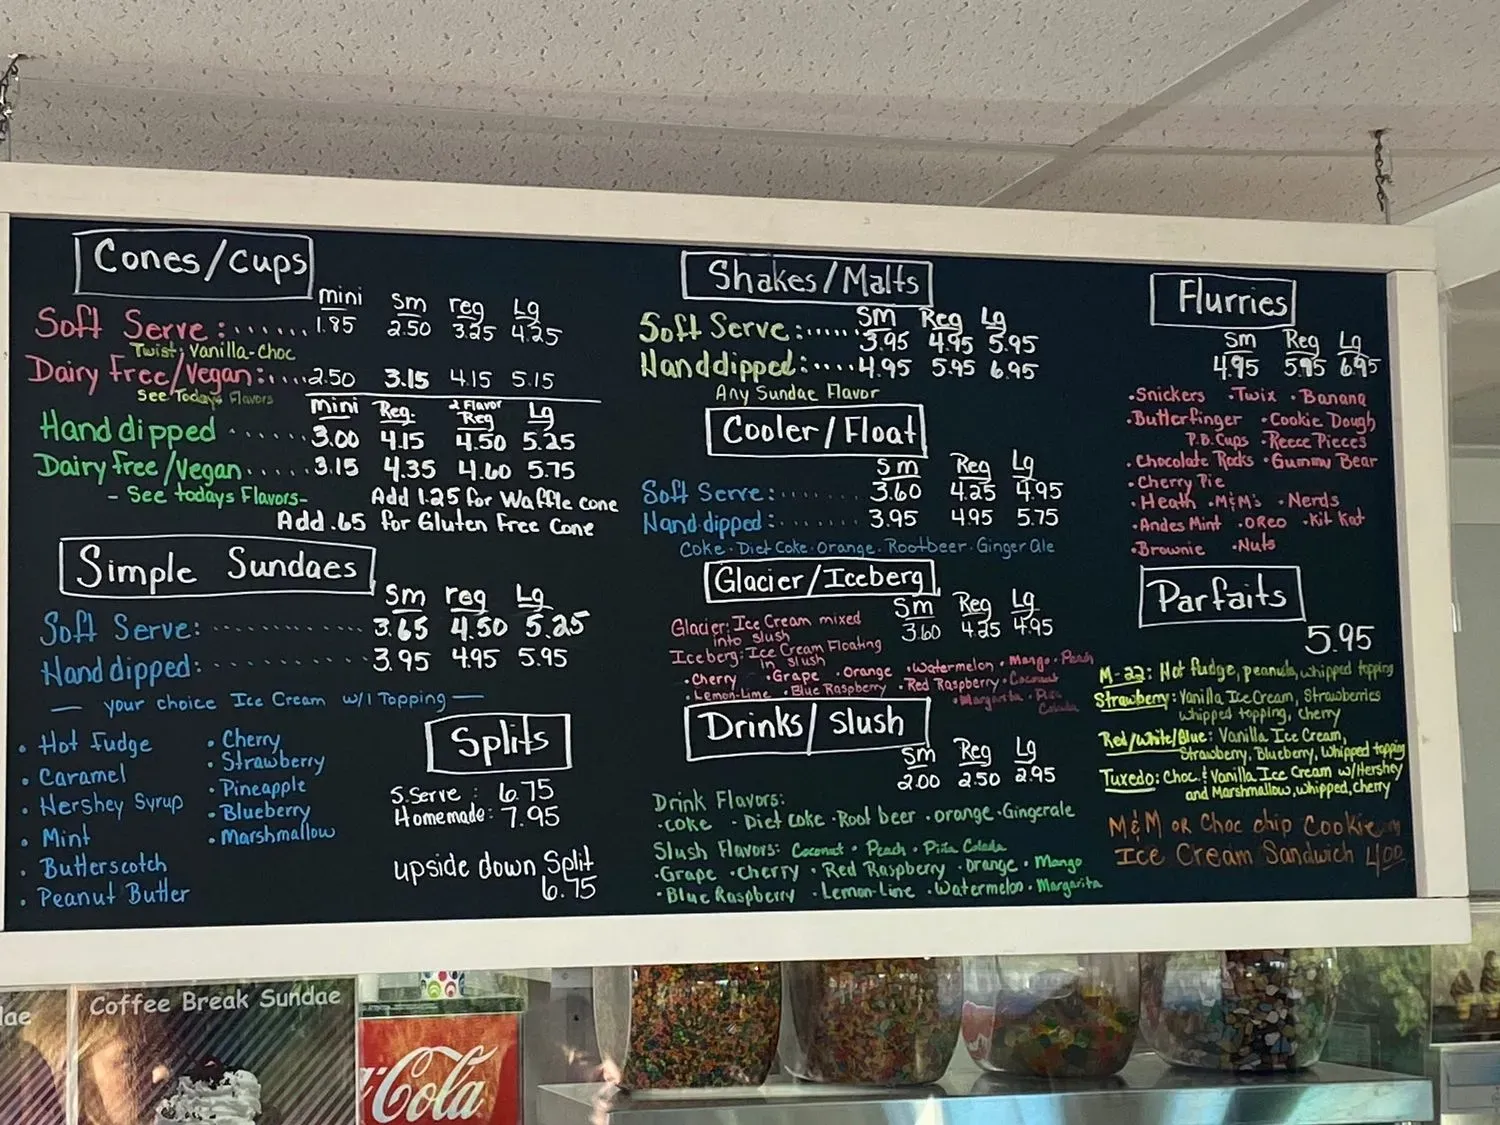 Cones/cups
mini sm reg Lg
Soft Serve:...... 1.85 2.50 3.25 4.25
Twist, Vanilla-Choc
Dairy Free/Vegan:.... 2.50 3.15 4.15 5.15
See Todays Flavors
mini Reg. 2 Flavor Reg Lg
Hand dipped ...... 3.00 4.15 4.50 5.25
Dairy free/Vegan..... 3.15 4.35 4.60 5.75
- See todays Flavors-
Add 1.25 for Waffle cone
Add .65 for Gluten Free Cone
Simple Sundaes
Sm reg Lg
Soft Serve: ............ 3.65 4.50 5.25
Hand dipped: .......... 3.95 4.95 5.95
— your choice Ice Cream w/1 Topping —
• Hot Fudge
• Caramel
• Hershey Syrup
• Mint
• Butterscotch
• Peanut Butter
• Cherry
• Strawberry
• Pineapple
• Blueberry
• Marshmallow
Splits
S.Serve: 6.75
Homemade: 7.95
upside down Split
6.75
Shakes/Malts
Sm Reg Lg
Soft Serve:...... 3.95 4.95 5.95
Handdipped:.... 4.95 5.95 6.95
Any Sundae Flavor
Cooler/Float
Sm Reg Lg
Soft Serve: ....... 3.60 4.25 4.95
Hand dipped: ....... 3.95 4.95 5.75
Coke • Diet Coke • Orange • Rootbeer • Ginger Ale
Glacier/Iceberg
Sm Reg Lg
3.60 4.25 4.95
Glacier: Ice Cream mixed
into slush
Iceberg: Ice Cream Floating
in slush
• Cherry • Grape • Orange • Watermelon • Mango • Peach
• Lemon-Lime • Blue Raspberry • Red Raspberry • Coconut
• Margarita • Piña
Colada
Drinks/Slush
Sm Reg Lg
2.00 2.50 2.95
Drink Flavors:
• Coke • Diet Coke • Root beer • orange • Gingerale
Slush Flavors: Coconut • Peach • Piña Colada
• Grape • Cherry • Red Raspberry • Orange • Mango
• Blue Raspberry • Lemon-Lime • Watermelon • Margarita
Flurries
Sm Reg Lg
4.95 5.95 6.95
• Snickers • Twix • Banana
• Butterfinger • Cookie Dough
P.B. Cups • Reece Pieces
• Chocolate Rocks • Gummy Bear
• Cherry Pie
• Heath • M&M's • Nerds
• Andes Mint • Oreo • Kit Kat
• Brownie • Nuts
Parfaits
5.95
M-22: Hot fudge, peanuts, whipped topping
Strawberry: Vanilla Ice Cream, Strawberries
whipped topping, cherry
Red/White/Blue: Vanilla Ice Cream,
Strawberry, Blueberry, Whipped topping
Tuxedo: Choc. & Vanilla Ice Cream w/Hershey
and Marshmallow, whipped, cherry
M&M or Choc chip Cookie
Ice Cream Sandwich 4.00
Coffee Break Sundae
Cola